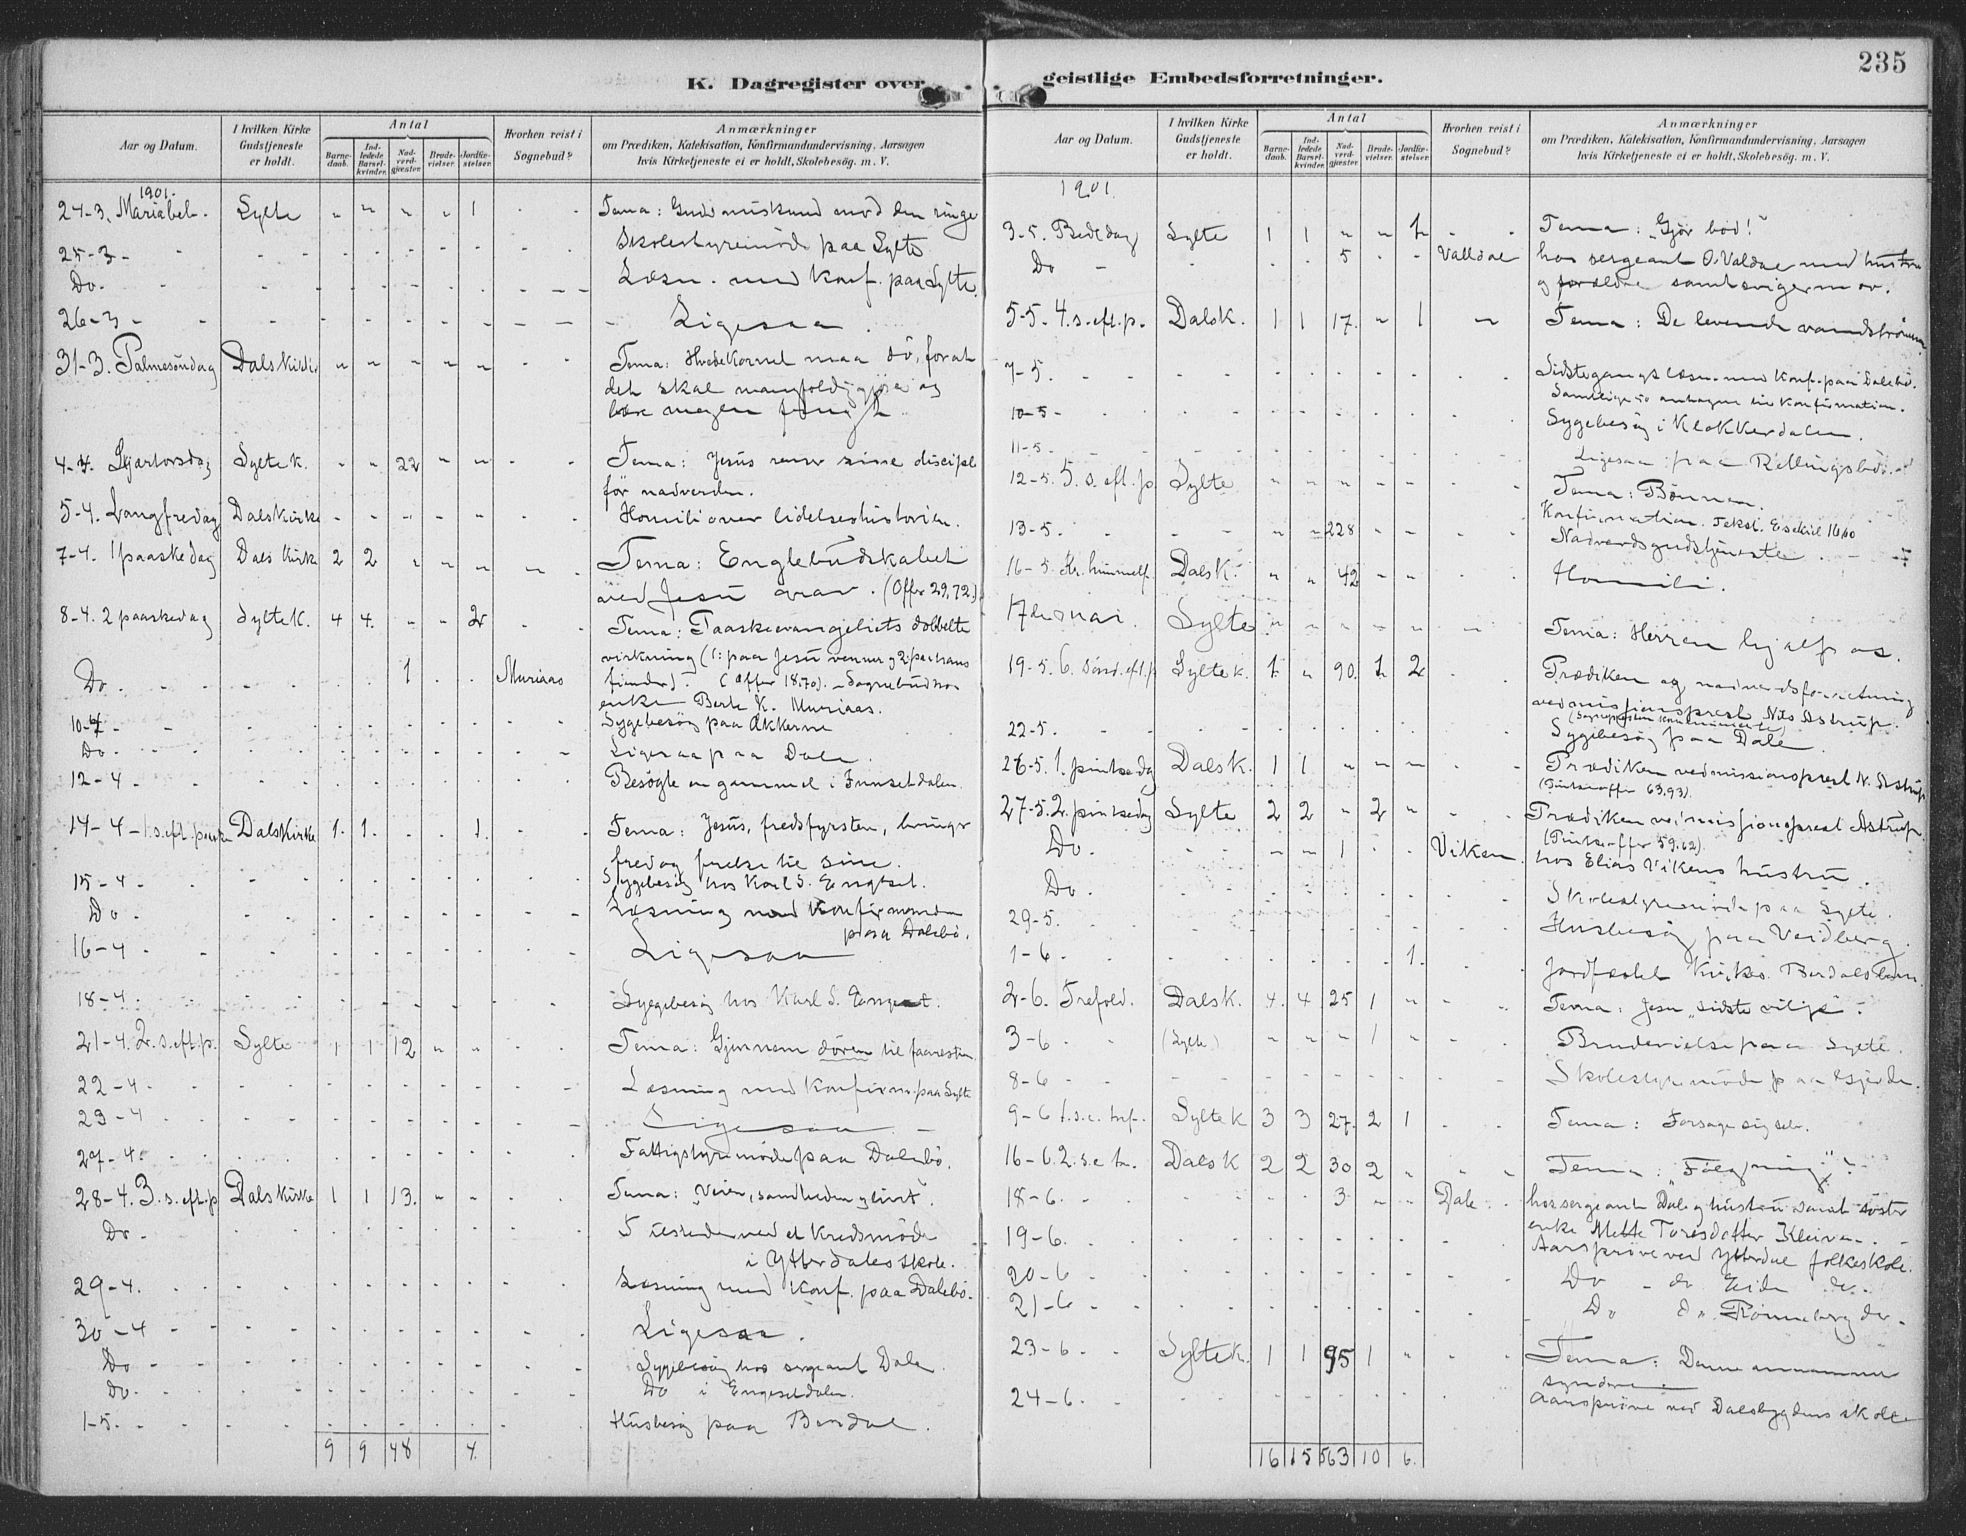 K. Dagregister over
Aar og Datum.
I hvilken Kirke Gudstjeneste er holdt.
Antal
Barnedaab.
Indledede Barselkvinder.
Nadverdgjæster.
Brudevielser.
Jordfæstelser.
Hvorhen reist i Sognebud?
Anmærkninger
om Prædiken, Katekisation, Konfirmandundervisning, Aarsagen
hvis Kirketjeneste ei er holdt, Skolebesøg. m. V.
1901.
24-3. Mariæbeb. Sylte " " " " 1 - - Tema: Guds miskund mod den ringe
25-3 - Skolestyremöde paa Sylte
Do. - Læsn. med Konf. paa Sylte.
26-3 - Ligesaa.
31-3. Palmesöndag Dals Kirke " " " " " - - Tema: Hvedekornet maa dö, forat
det skal mangfoldiggjöre og
bære megen frugt.
4-4. Skjærtorsdag Sylte K. " " 22 " " - - Tema: Jesus renser sine discipl
för nadverden.
5-4. Langfredag Dalskirke - - - - - Homili over lidelseshistorien.
7-4. 1 paaskedag Dals Kirk 2 2 " " " - - Tema: Englebudskabet
ved Jesu grav. (Offer 29,72.)
8-4. 2 paaskedag Sylte K. 4 4. " " 2 - - Tema: Paaskeevangeliets dobbelte
virkning (1: paa Jesu venner og 2: paa hans
fiender). (Offer 18,70). - Sognebud hos
Do. 1 Muriaas
enke Berte K. Muriaas.
10-4 - Sygebesög paa Akkerne
Do - Ligesaa paa Dale.
12-4 - Besögte en gammel i Furusetdalen.
14-4 - 1.s.eft. paaske Dalskirke 1. 1. - - 1. - - Tema: Jesus, fredsfyrsten, bringer
fred og frelse til sine.
15-4 - Sygebesög hos Karl S. Engeset.
Do - Læsning med Konfirmanden
paa Dalebö.
16-4 - Ligesaa
18-4. Sygebesög hos Karl S. Engeset.
21-4. 2. s. eft. p. Sylte 1 1 12 " " - - Tema: Gjennem dören til faarestien.
22-4 - Læsning med Konfirm. paa Sylte
23-4 - Ligesaa -
27-4. Fattigstyremöde paa Dalebö.
28-4. 3. s. eft. p Dals Kirke 1 1 13. " " - - Tema: "Veien, sandheden og livet".
Do - Tilstede ved et Kredsmöde
i Ytterdales skole.
29-4. Læsning med Konf. paa Dalebö.
30-4 - Ligesaa.
Do - Sygebesög hos sergeant Dale.
Do - Do i Engesetdalen.
1-5. - Husbesög paa Berdal.
9 9 48 4.
geistlige Embedsforretninger.
235
Aar og Datum.
I hvilken Kirke Gudstjeneste er holdt.
Antal
Barnedaab.
Indledede Barselkvinder.
Nadverdgjæster.
Brudevielser.
Jordfæstelser.
Hvorhen reist i Sognebud?
Anmærkninger
om Prædiken, Katekisation, Konfirmandundervisning, Aarsagen
hvis Kirketjeneste ei er holdt, Skolebesøg. m. V.
1901.
3-5. Bededag Sylte 1 1 " " 1 - - Tema: "Gjör bod!"
Do - 5 - - Valldal hos sergeant O. Valdal med hustru
og forældre samt svigermor.
5-5. 4. s. eft. p. Dalsk. 1 1 17. " 1 " Tema: De levende vandströmme
7-5. Sidstegangs læsn. med Konf. paa Dalebö.
Samtlige antagne til Konfirmation.
10-5 - Sygebesög i Klokkerdalen.
11-5 - Ligesaa paa Rellingsbö
12-5. 5. s. eft. p Sylte " " " " " Tema: Bönnen.
Konfirmation. Tekst. Esekiel 16,60
13-5. " " 228 - - Nadverdgudstjeneste. -
16-5. Kr. himmelf. Dalsk. " " 42 " " - Homili.
17de mai. Sylte " " " " " " Tema: Herren hjalp os.
19-5. 6. sönd. eft. p Sylte K. 1. " 90. 1 2 - - Prædiken og nadverdsforretning
ved missionsprest Nils Astrup.
22-5. Sygebesög paa Dale.
26-5. 1. pintsedag Dalsk. 1 1 " " " - - Prædiken ved missionsprest N. Astrup
(Pintseoffer 63,93).
27-5. 2. pintsedag Sylte 2 2 " 2 " - - Prædiken ved missionsprest Astrup
(Pintseoffer 59,62).
Do. " " 1 - - Viken. hos Elias Vikens hustru.
Do. Skolestyremöde paa Sylte.
29-5. Husbesög paa Veidberg.
1-6 - 1. Jordfæstet Berdals barn.
2-6. Trefold. Dalsk. 4. 4 25 1 " - - Tema: Jesu "sidste vilje".
3-6 - (Sylte) " " " 1 - Brudevielse paa Sylte.
8-6 - Skolestyremöde paa Gjerde.
9-6 1. s. e. tref. Sylte K 3 3 27. 2 1 - - Tema: Forsage sig selv.
16-6. 2. s. e tr. Dalsk 2 2 30 2 " - - Tema: "Fölgning".
18-6. 3 " - Dale hos sergeant Dale og hustru samt söster
enke Mette Toresdatter Kleiva. -
19-6. Aarspröve ved Ytterdal folkeskole.
20-6 Do - do Eide do -
21-6 - Do do Rönneberg do -
23-6 - Sylte K. 1 1 95 1 " - - Tema: Denne annammer
syndere.
24-6. Aarspröve ved Dalsbygdens skole
16 15 563 10 6.